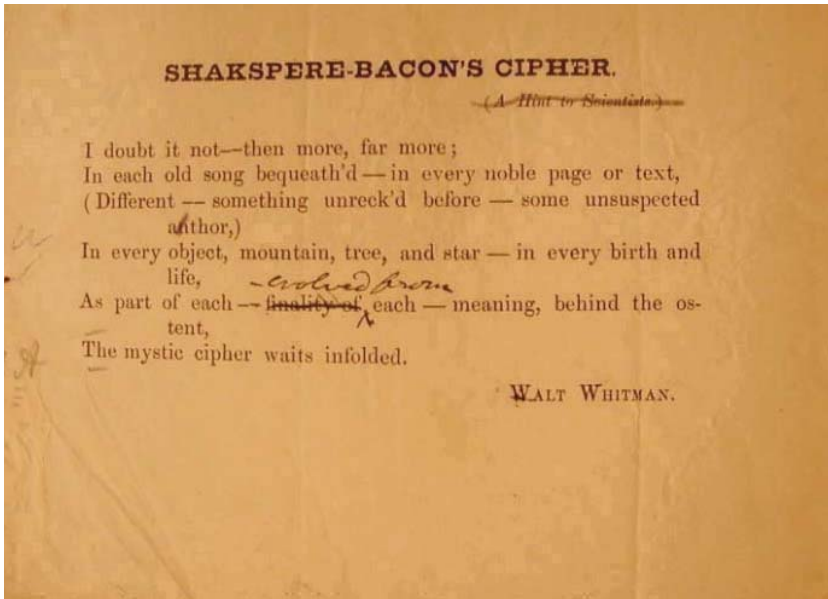 SHAKSPERE-BACON'S CIPHER.
(A Hint to Scientists.)
I doubt it not—then more, far more;
In each old song bequeath'd — in every noble page or text,
(Different — something unreck'd before — some unsuspected
author,)
In every object, mountain, tree, and star — in every birth and
life,
- evolved from
As part of each — finality of each — meaning, behind the os-
tent,
The mystic cipher waits infolded.
WALT WHITMAN.